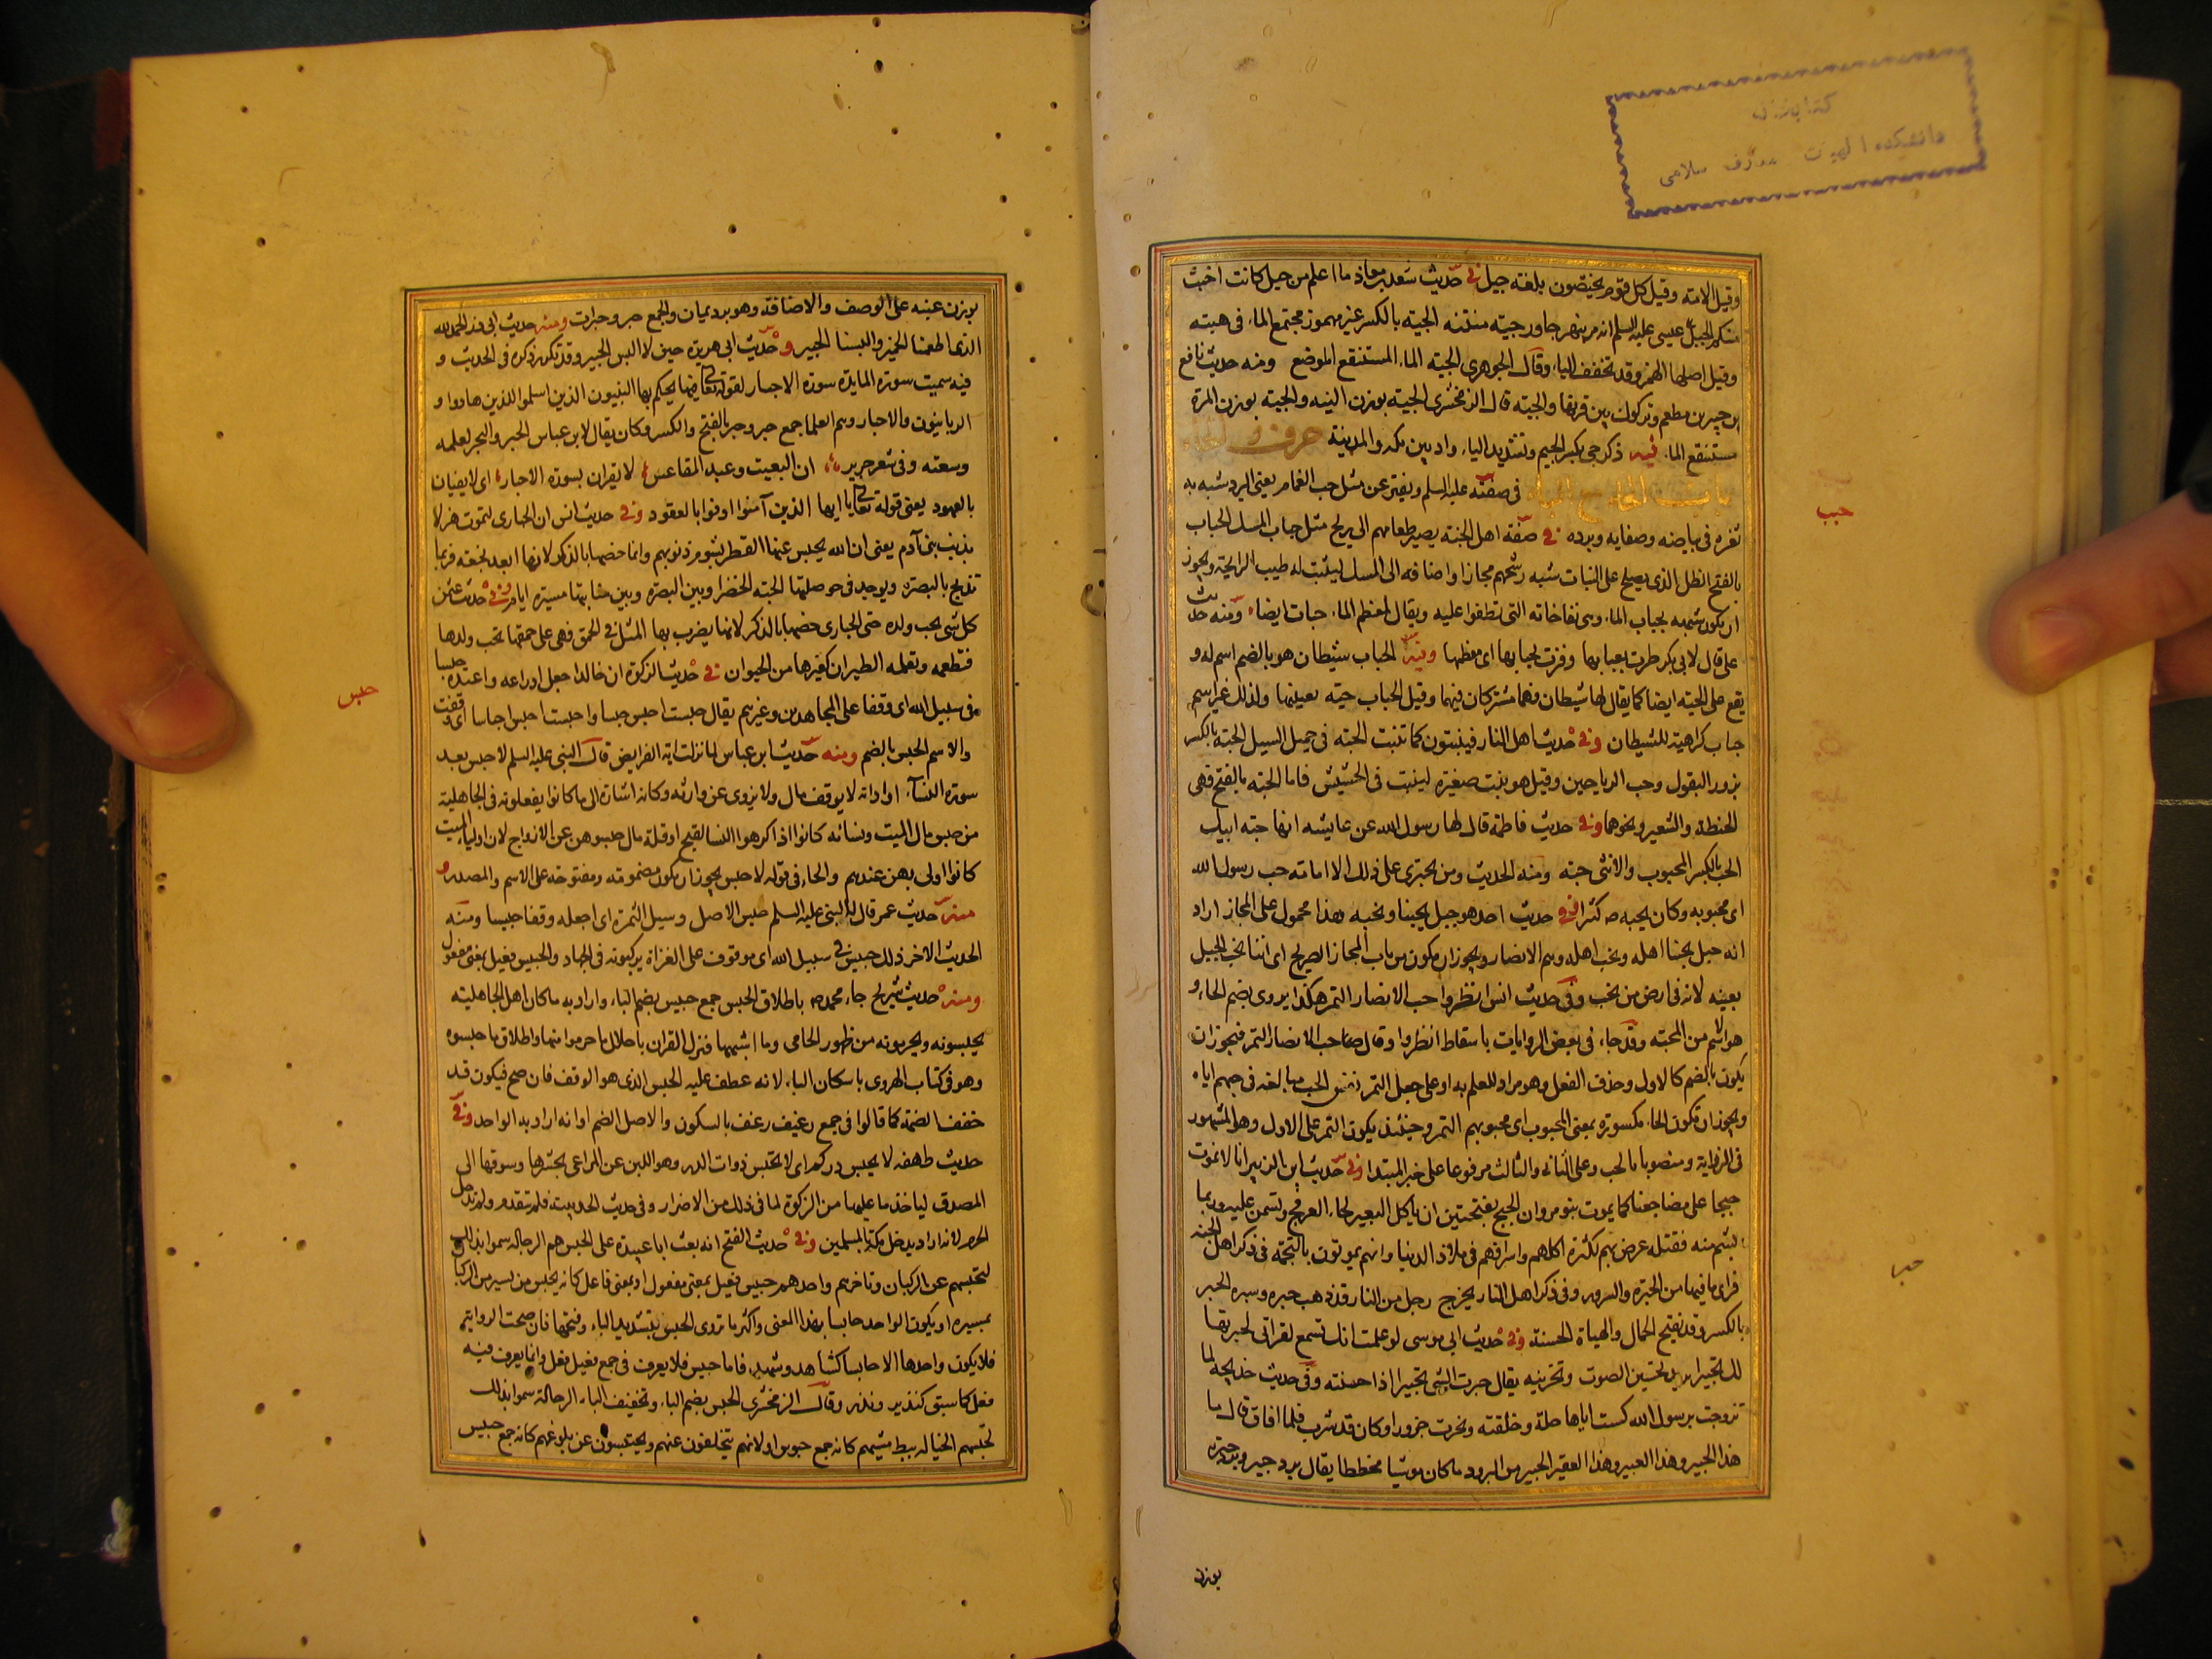 كتابخانه
دانشكده الهيات معارف اسلامى
وقيل الامة وقيل كل قوم يختصون بلغة جيل فى حديث سعد بن معاذ ما اعلم من جيل كانت اخبث
منكم الجيل عيسى عليه السلم انه مر بنهر جاور جية منتنه الجية بالكسر غير مهموز مجتمع الماء فى هبته
وقيل اصلها الهمز وقد تخفف الياء وقال الجوهرى الجية الماء المستنقع الموضع ومنه حديث نافع
بن جبير بن مطعم وتركوك بين قرنها والجية قال الزمخشرى الجية بوزن النية والجية بوزن المرة
مستنقع الماء فيه ذكر جى بكسر الجيم وتشديد الياء واد بين مكه والمدينة حرف
باب الحاء مع الباء فى صفته عليه السلم ويفتر عن مثل حب الغمام يعنى البرد شبه به
حبب
ثغره فى بياضه وصفايه وبرده فى صفة اهل الجنة يصير طعامهم الى ريح مثل حباب المسك الحباب
بالفتح الطل الذى يصبح على النبات شبه رشحهم مجازا واضافه الى المسك ليثبت له طيب الرايحة ويجوز
ان يكون شبهه بحباب الماء وهى نفاخاته التى تطفوا عليه ويقال لمعظم الماء حباب ايضا ومنه حديث
على قال لابى بكر طرت بعبابها وفزت بحبابها اى معظمها وفيه الحباب شيطان هو بالضم اسم له و
يقع على الحية ايضا كما يقال لها شيطان فهما مشتركان فيهما وقيل الحباب حية بعينها ولذلك غير اسم
حباب كراهية للشيطان وفى حديث اهل النار فينبتون كما تنبت الحبة فى حميل السيل الحبة بالكسر
بزور البقول وحب الرياحين وقيل هو نبت صغيره لينبت فى الحشيش فاما الحبة بالفتح فهى
الحنطة والشعير ونحوهما وفى حديث فاطمة قال لها رسول الله عن عايشه انها حبة ابيك
الحب بالكسر المحبوب والانثى حبة ومنه الحديث ومن يجترى على ذلك الا اسامة حب رسول الله
اى محبوبه وكان يحبه ص كثيرا وفى حديث احد هو جبل يحبنا ونحبه هذا محمول على المجاز اراد
انه جبل يحبنا اهله ونحب اهله وهم الانصار ويجوز ان يكون من باب المجاز الصريح اى اننا نحب الجبل
بعينه لانه فى ارض من نحب وفى حديث انس انظروا حب الانصار التمر هكذا يروى بضم الحاء و
هو اسم من المحبة وقد جاء فى بعض الروايات باسقاط انظروا وقال صاحب الانصار التمر فيجوز ان
يكون بالضم كالاول وحذف الفعل وهو مراد للعلم به او على جعل التمر نفس الحب مبالغة فى حبهم اياه
ويجوز ان تكون الحاء مكسورة بمعنى المحبوب اى محبوبهم التمر وحينئذ يكون التمر على الاول وهو المشهور
فى الرواية ومنصوبا بالحب وعلى الثانى والثالث مرفوعا على خبر المبتدا وفى حديث ابن الزبير انا لا نموت
حبجا على مضاجعنا كما يموت بنو مروان الحبج بفتحتين ان ياكل البعير لحاء العرفج ويسمن عليه وربما
بشم منه فقتله عرض بهم لكثرة اكلهم واسرافهم فى ملاذ الدنيا وانهم يموتون بالتخمة فى ذكر اهل الجنة
حبر
فراى ما فيها من الحبرة والسرور وفى ذكر اهل النار يخرج رجل من النار قد ذهب حبره وسبره الحبر
بالكسر وقد يفتح الجمال والهياة الحسنة وفى حديث ابى موسى لو علمت انك تسمع لقراتى لحبرتها
لك تحبيرا يريد تحسين الصوت وتحزينه يقال حبرت الشى تحبيرا اذا حسنته وفى حديث خديجة لما
تزوجت برسول الله كست اباها حلة وخلقته ونحرت جزورا وكان قد شرب فلما افاق قال ما
هذا الحبير وهذا العبير وهذا العقير الحبير من البرود ما كان موشيا مخططا يقال برد حبير وبرد حبرة
بوزن
بوزن عنبه على الوصف والاضافة وهو برد يمان والجمع حبر وحبرات ومنه حديث ابى ذر الحمد لله
الذى اطعمنا الخمير والبسنا الحبير وحديث ابى هريرة حين لا البس الحبير وقد تكرر ذكره فى الحديث و
فيه سميت سورة المايدة سورة الاحبار لقوله تعالى فيها يحكم بها النبيون الذين اسلموا للذين هادوا و
الربانيون والاحبار وهم العلما جمع حبر وحبر بالفتح والكسر وكان يقال لابن عباس الحبر والبحر لعلمه
وسعته وفى شعر جرير ان البعيث وعبد المقاعس لا يقران بسورة الاحبار اى لا يفيان
بالعهود يعنى قوله تعالى يا ايها الذين آمنوا اوفوا بالعقود وفى حديث انس ان الحبارى لتموت هزلا
بذنب بنى آدم يعنى ان الله يحبس عنها القطر بشوم ذنوبهم وانما خصها بالذكر لانها ابعد نجعة فربما
تذبح بالبصرة ويوجد فى حوصلتها الحبة الخضرا وبين البصرة وبين منابتها مسيرة ايام وفى حديث عثمن
كل شى يحب ولده حتى الحبارى خصها بالذكر لانها يضرب بها المثل فى الحمق فهى على حمقها تحب ولدها
فتطعمه وتعلمه الطيران كغيرها من الحيوان فى حديث الزكوة ان خالدا جعل ادراعه واعتده حبسا
حبس
فى سبيل الله اى وقفا على المجاهدين وغيرهم يقال حبست احبس حبسا واحبست احبس احباسا اى وقفت
والاسم الحبس بالضم ومنه حديث ابن عباس لما نزلت اية الفرايض قال النبى عليه السلم لا حبس بعد
سورة النساء اراد انه لا يوقف مال ولا يزوى عن وارثه وكانه اشارة الى ما كانوا يفعلونه فى الجاهلية
من حبس مال الميت ونسائه كانوا اذا كرهوا النسا لقبح او قلة مال حبسوهن عن الازواج لان اولياء الميت
كانوا اولى بهن عندهم والحاء فى قوله لا حبس يجوز ان يكون مضمومة ومفتوحة على الاسم والمصدر و
منه حديث عمر قال له النبى عليه السلم حبس الاصل وسبل الثمرة اى اجعله وقفا حبيسا ومنه
الحديث الاخر ذلك حبيس فى سبيل الله اى موقوف على الغزاة يركبونه فى الجهاد والحبيس فعيل بمعنى مفعول
ومنه حديث شريح جاء محمد ص باطلاق الحبس جمع حبيس بضم الباء واراد به ما كان اهل الجاهلية
يحبسونه ويحرمونه من ظهور الحامى وما اشبهها فنزل القران باحلال ما حرموا منها واطلاق ما حبسوه
وهو فى كتاب الهروى باسكان الباء لانه عطف عليه الحبس الذى هو الوقف فان صح فيكون قد
خفف الضمة كما قالوا فى جمع رغيف رغف بالسكون والاصل الضم او انه اراد به الواحد وفى
حديث طهفه لا يحبس دركم اى لا تحتبس ذوات الدر وهو اللبن عن المراعى بحشرها وسوقها الى
المصدق لياخذ ما عليها من الزكوة لما فى ذلك من الاضرار وفى حديث الحديبية فلم تتقدم ولم تدخل
الحرم لانه اراد يدخل مكة بالمسلمين وفى حديث الفتح انه بعث ابا عبيدة على الحبس هم الرجالة سموا بذلك
لتحبسهم عن الركبان وتاخرهم واحدهم حبيس فعيل بمعنى مفعول او بمعنى فاعل كانه يحبس من يسير من الركبان
بمسيره او يكون الواحد حابسا بهذا المعنى واكثر ما تروى الحبس بتشديد الباء وفتحها فان صحت الرواية
فلا يكون واحدها الا حابسا كشاهد وشهد فاما حبيس فلا يعرف فى جمع فعيل فعل وانما يعرف فيه
فعل كما سبق كنذير ونذر وقال الزمخشرى الحبس بضم الباء وتخفيف الباء الرجالة سموا بذلك
لحبسهم الخيالة ببط مشيهم كانه جمع حبوس او لانهم يتخلفون عنهم ويحتبسون عن بلوغهم كانه جمع حبيس